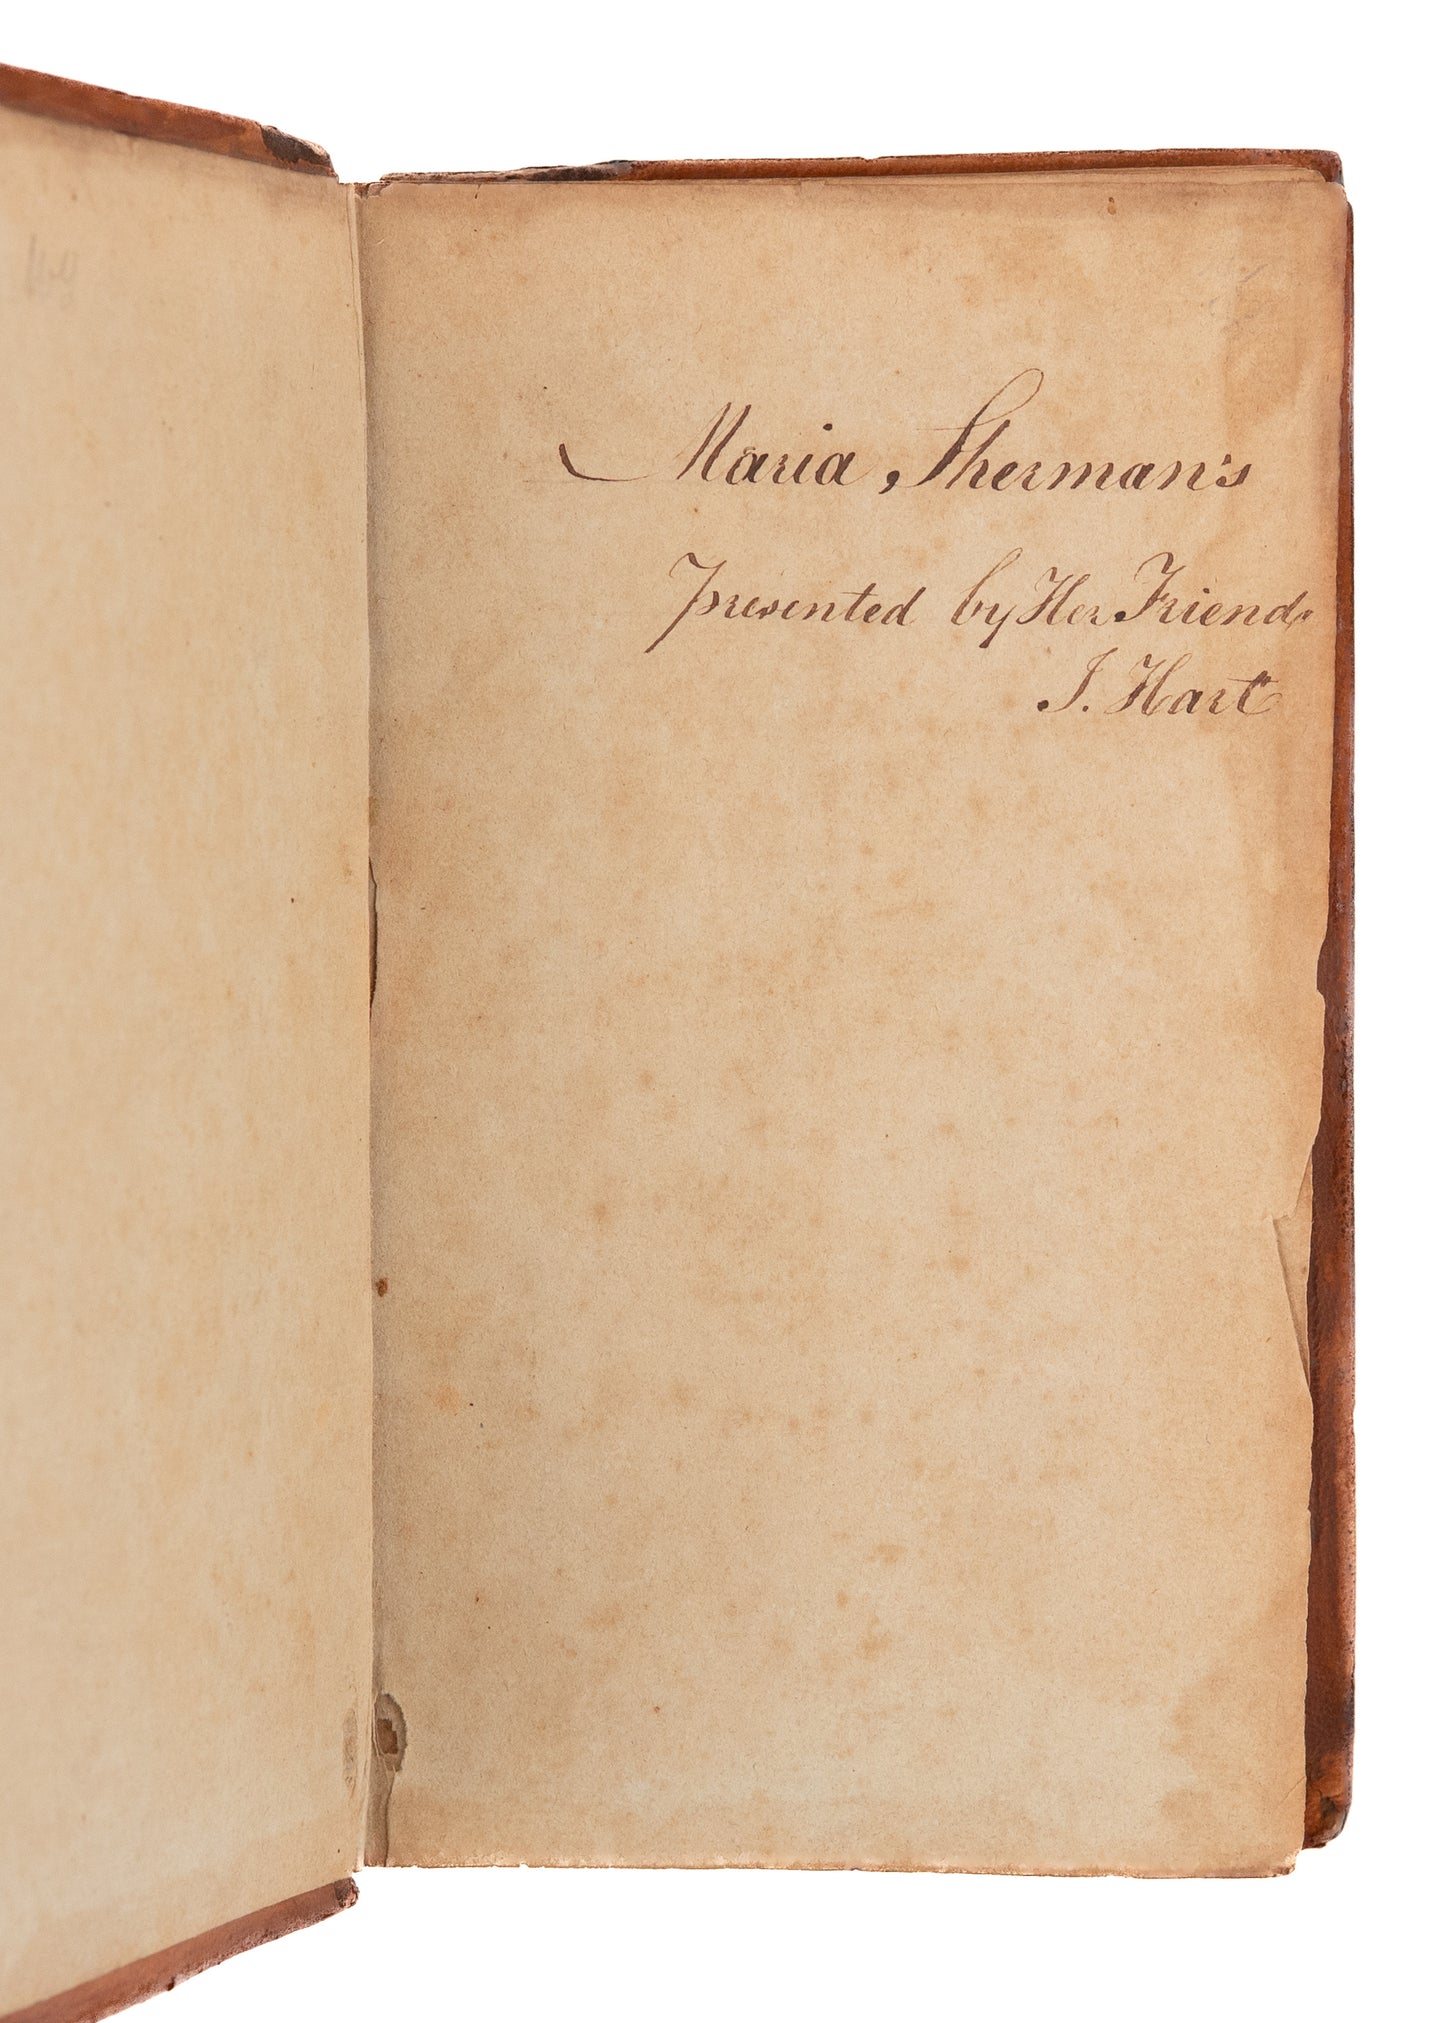 Maria Sherman's
Presented by Her Friend
J. Hart